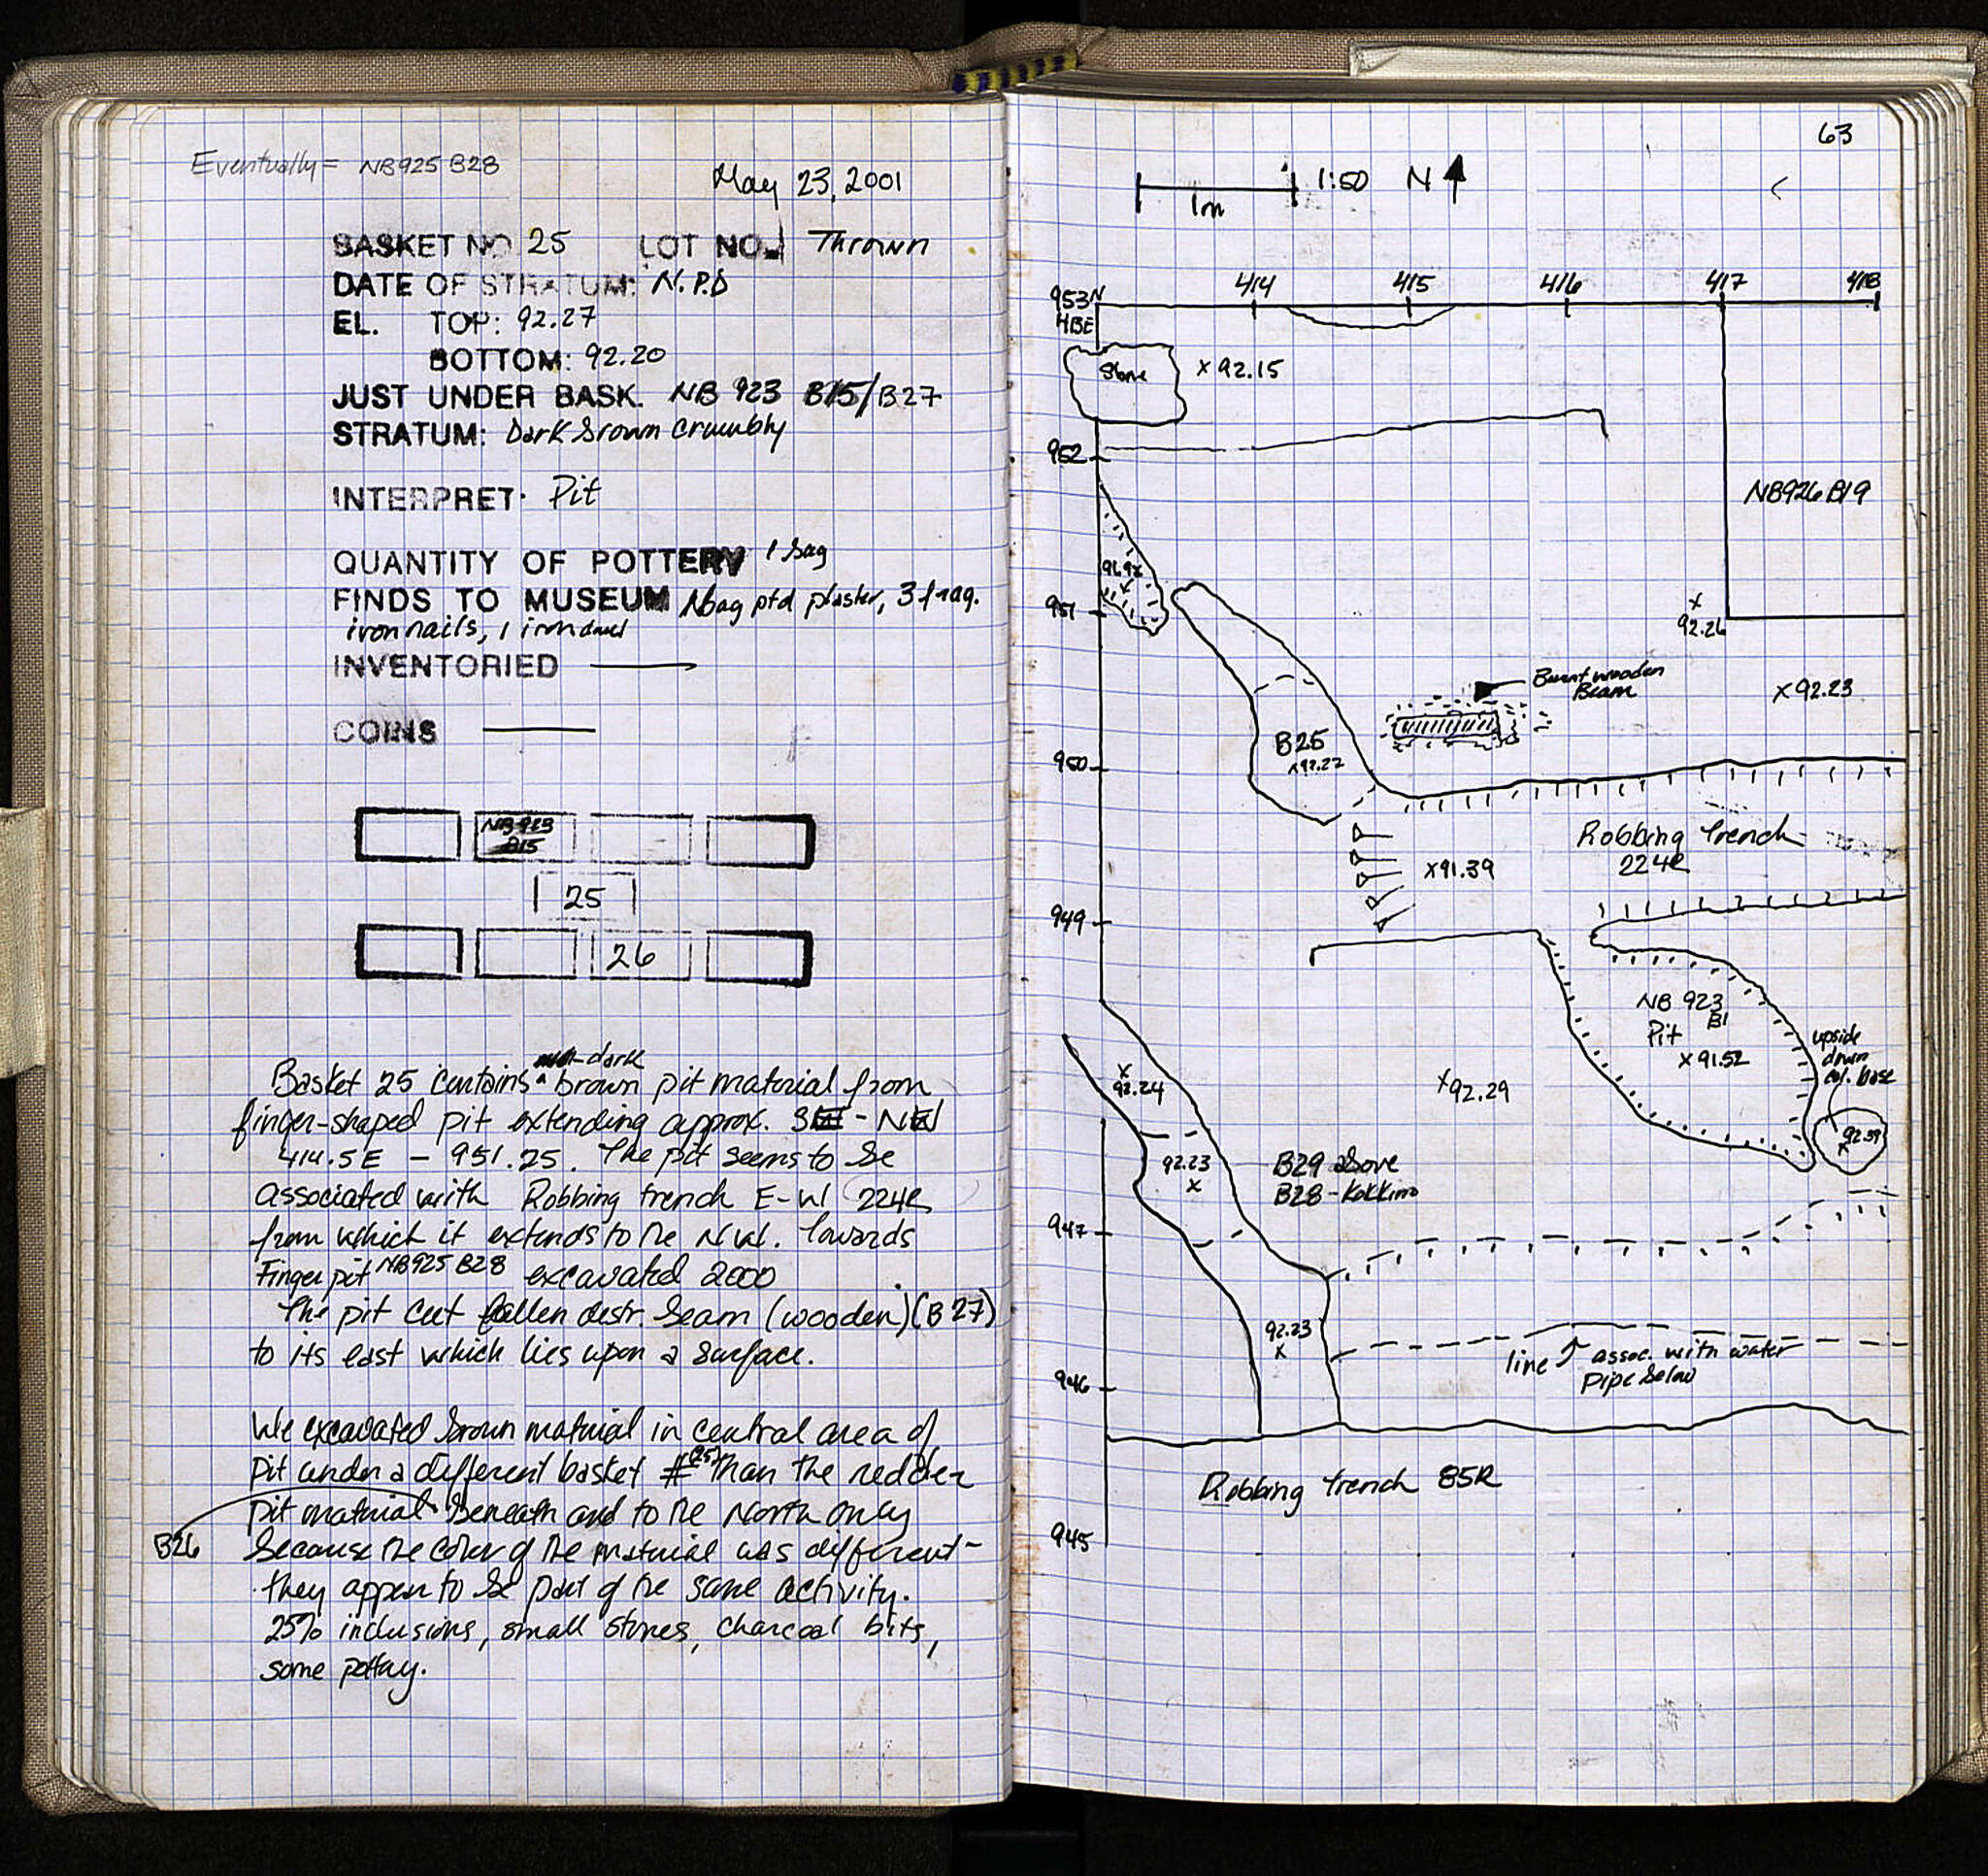 Eventually = NB925 B28
May 23, 2001
BASKET NO 25 LOT NO. Thrown
DATE OF STRATUM: N.P.D
EL. TOP: 92.27
BOTTOM: 92.20
JUST UNDER BASK. NB 923 B15/B27
STRATUM: Dark brown crumbly
INTERPRET. Pit
QUANTITY OF POTTERY 1 bag
FINDS TO MUSEUM 1 bag ptd plaster, 3 frag.
iron nails, 1 iron
INVENTORIED
COINS
NB 923
B15
25
26
dark
Basket 25 contains brown pit material from
finger-shaped pit extending approx. SE - NW
414.5E - 951.25. The pit seems to be
associated with Robbing trench E-W 224R
from which it extends to the NW. Towards
Finger pit NB925 B28 excavated 2000
The pit cut fallen destr. beam (wooden) (B27)
to its east which lies upon a surface.
We excavated brown material in central area of
pit under a different basket # (25) than the redder
pit material beneath and to the North only
B26 because the color of the material was different -
they appear to be part of the same activity.
25% inclusions, small stones, charcoal bits,
some pottery.
63
1:50 N
1m
414 415 416 417 418
953N
Stone
x 92.15
952
NB926 B19
951
x
92.26
Burnt wooden
Beam
x 92.23
B25
x 92.22
950
Robbing Trench
224R
x 91.39
949
NB 923
B1
Pit
x 91.52
upside
down
col. base
x
92.24
x 92.29
92.59
x
92.23
x
B29 above
B28 - Kokkino
947
92.23
x
line assoc. with water
pipe below
946
Robbing trench 85R
945